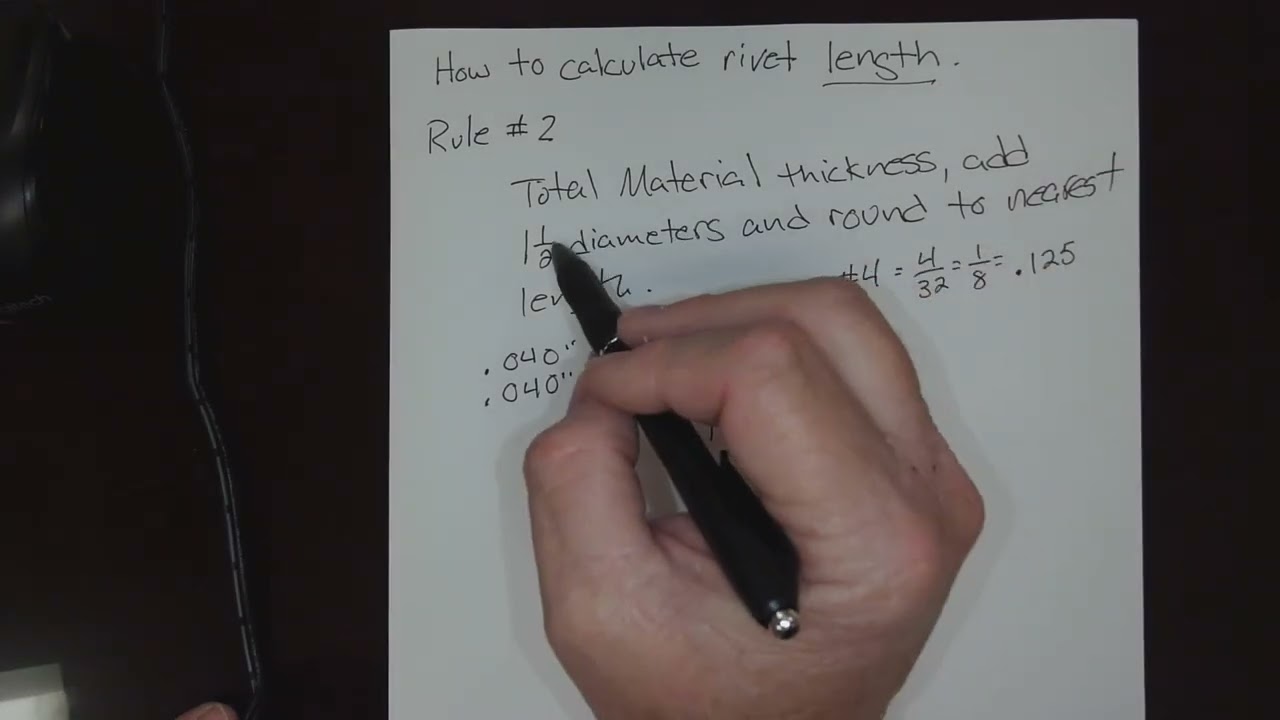 How to calculate rivet length.
Rule # 2
Total Material thickness, add
1 1/2 diameters and round to nearest
#4 = 4/32 = 1/8 = .125
.040"
.040"